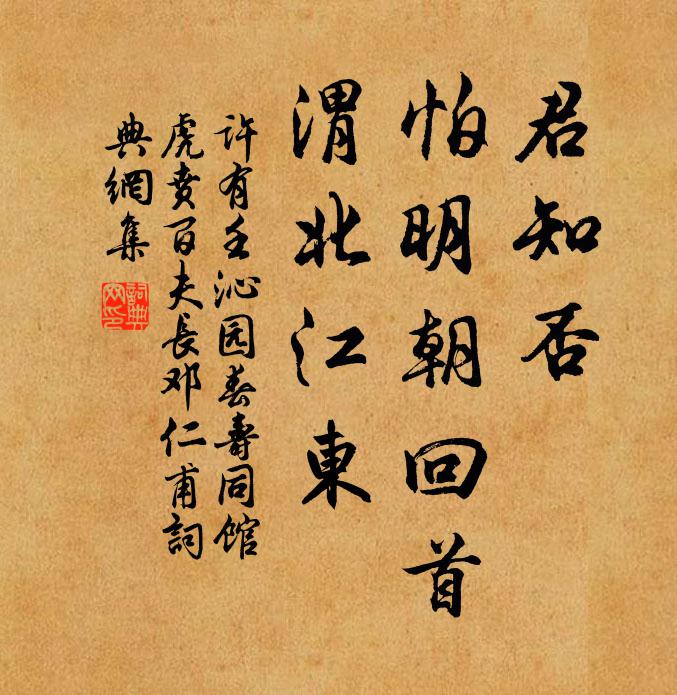 君知否
怕明朝回首
渭北江東
许有壬沁园春壽同館
虎賁百夫長邓仁甫詞
典網集
詞典網印